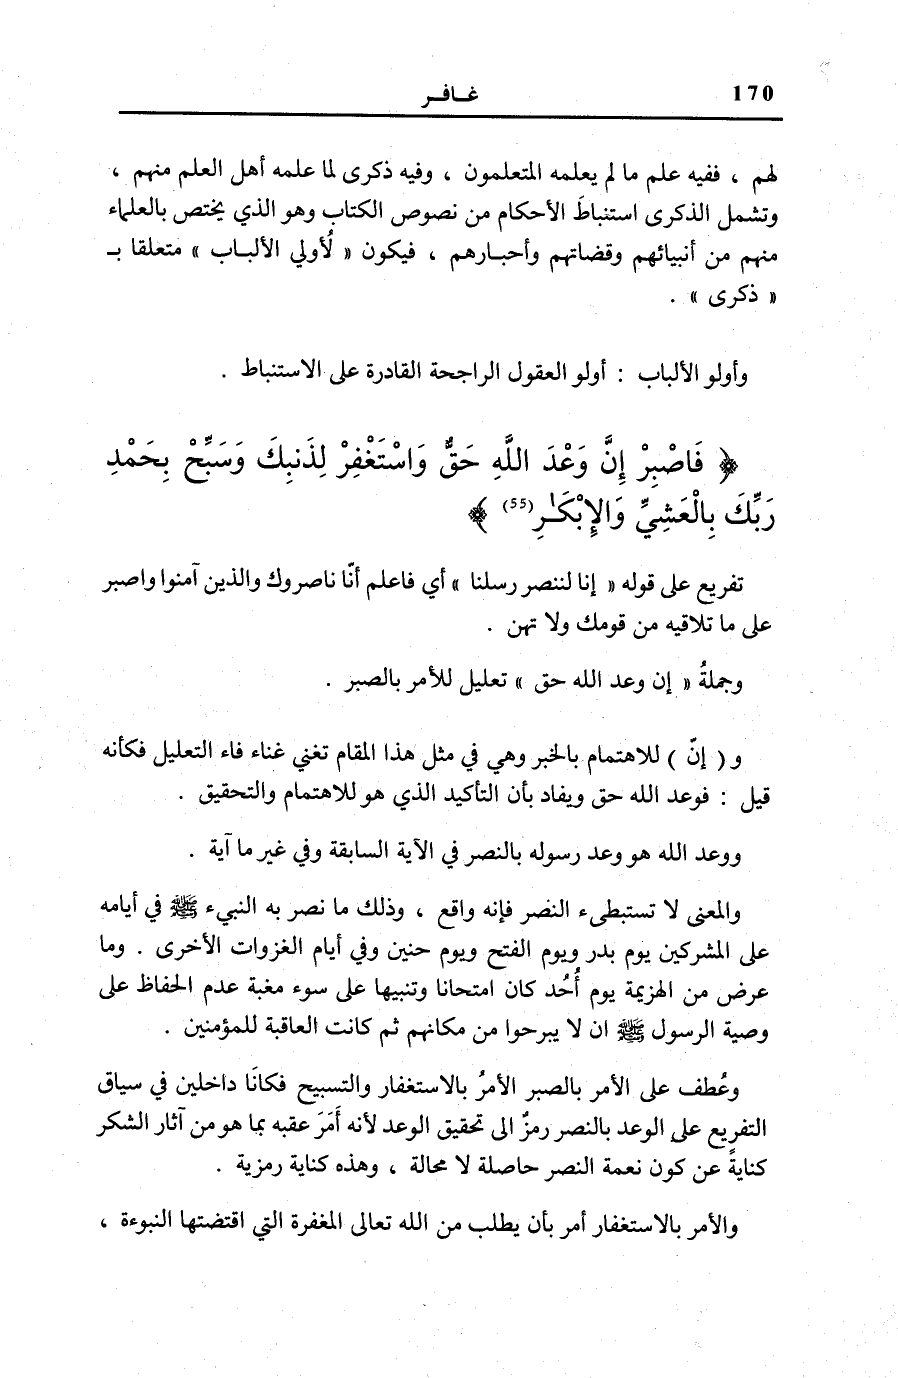 170 غـافـر
لهم ، ففيه علم ما لم يعلمه المتعلمون ، وفيه ذكرى لما علمه أهل العلم منهم ،
وتشمل الذكرى استنباطَ الأحكام من نصوص الكتاب وهو الذي يختص بالعلماء
منهم من أنبيائهم وقضاتهم وأحبـارهم ، فيكون « لأولي الألبـاب » متعلقا بـ
« ذكرى » .
وأولو الألباب : أولو العقول الراجحة القادرة على الاستنباط .
﴿ فَاصْبِرْ إِنَّ وَعْدَ اللَّهِ حَقٌّ وَاسْتَغْفِرْ لِذَنبِكَ وَسَبِّحْ بِحَمْدِ
رَبِّكَ بِالْعَشِيِّ وَالإِبْكَـٰرِ (55) ﴾
تفريع على قوله « إنا لننصر رسلنا » أي فاعلم أنّا ناصروك والذين آمنوا واصبر
على ما تلاقيه من قومك ولا تهن .
وجملةُ « إن وعد الله حق » تعليل للأمر بالصبر .
و ( إنّ ) للاهتمام بالخبر وهي في مثل هذا المقام تغني غناء فاء التعليل فكأنه
قيل : فوعد الله حق ويفاد بأن التأكيد الذي هو للاهتمام والتحقيق .
ووعد الله هو وعد رسوله بالنصر في الآية السابقة وفي غير ما آية .
والمعنى لا تستبطىء النصر فإنه واقع ، وذلك ما نصر به النبيء ﷺ في أيامه
على المشركين يوم بدر ويوم الفتح ويوم حنين وفي أيام الغزوات الأخرى . وما
عرض من الهزيمة يوم أُحُد كان امتحانا وتنبيها على سوء مغبة عدم الحفاظ على
وصية الرسول ﷺ ان لا يبرحوا من مكانهم ثم كانت العاقبة للمؤمنين .
وعُطف على الأمر بالصبر الأمرُ بالاستغفار والتسبيح فكانَا داخلين في سياق
التفريع على الوعد بالنصر رمزٌ الى تحقيق الوعد لأنه أَمَرَ عقبه بما هو من آثار الشكر
كنايةً عن كون نعمة النصر حاصلة لا محالة ، وهذه كناية رمزية .
والأمر بالاستغفار أمر بأن يطلب من الله تعالى المغفرة التي اقتضتها النبوءة ،